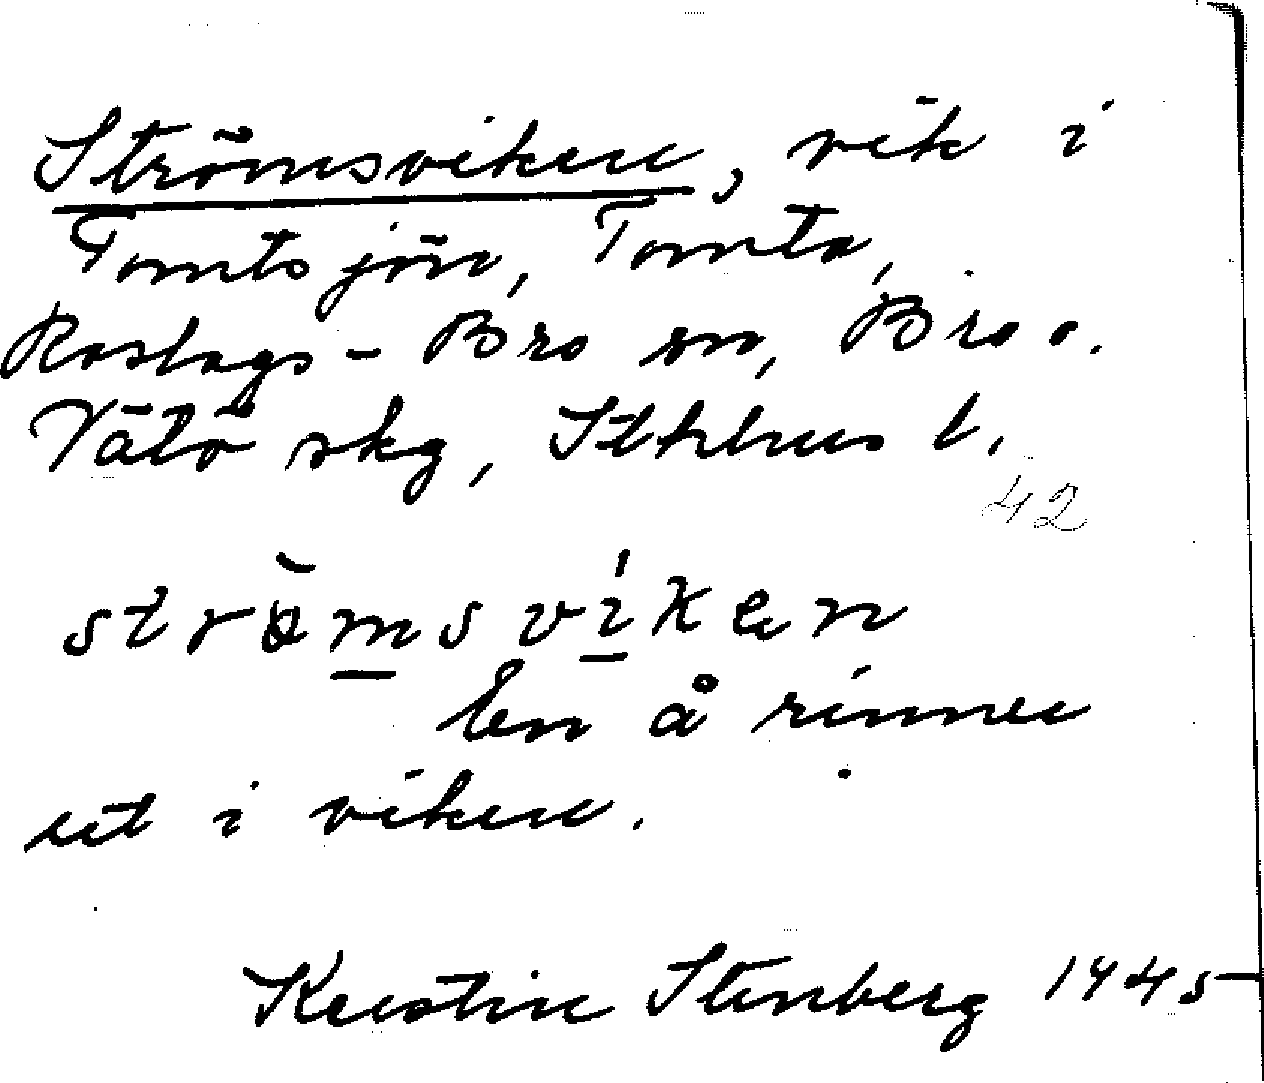 Strömsviken, vik i
Tomtsjön, Tomta,
Roslags-Bro sn, Bro o.
Vätö skg, Sthlms l.
42
strö̀msvíken
En å rinner
ut i viken.
Kerstin Stenberg 1945